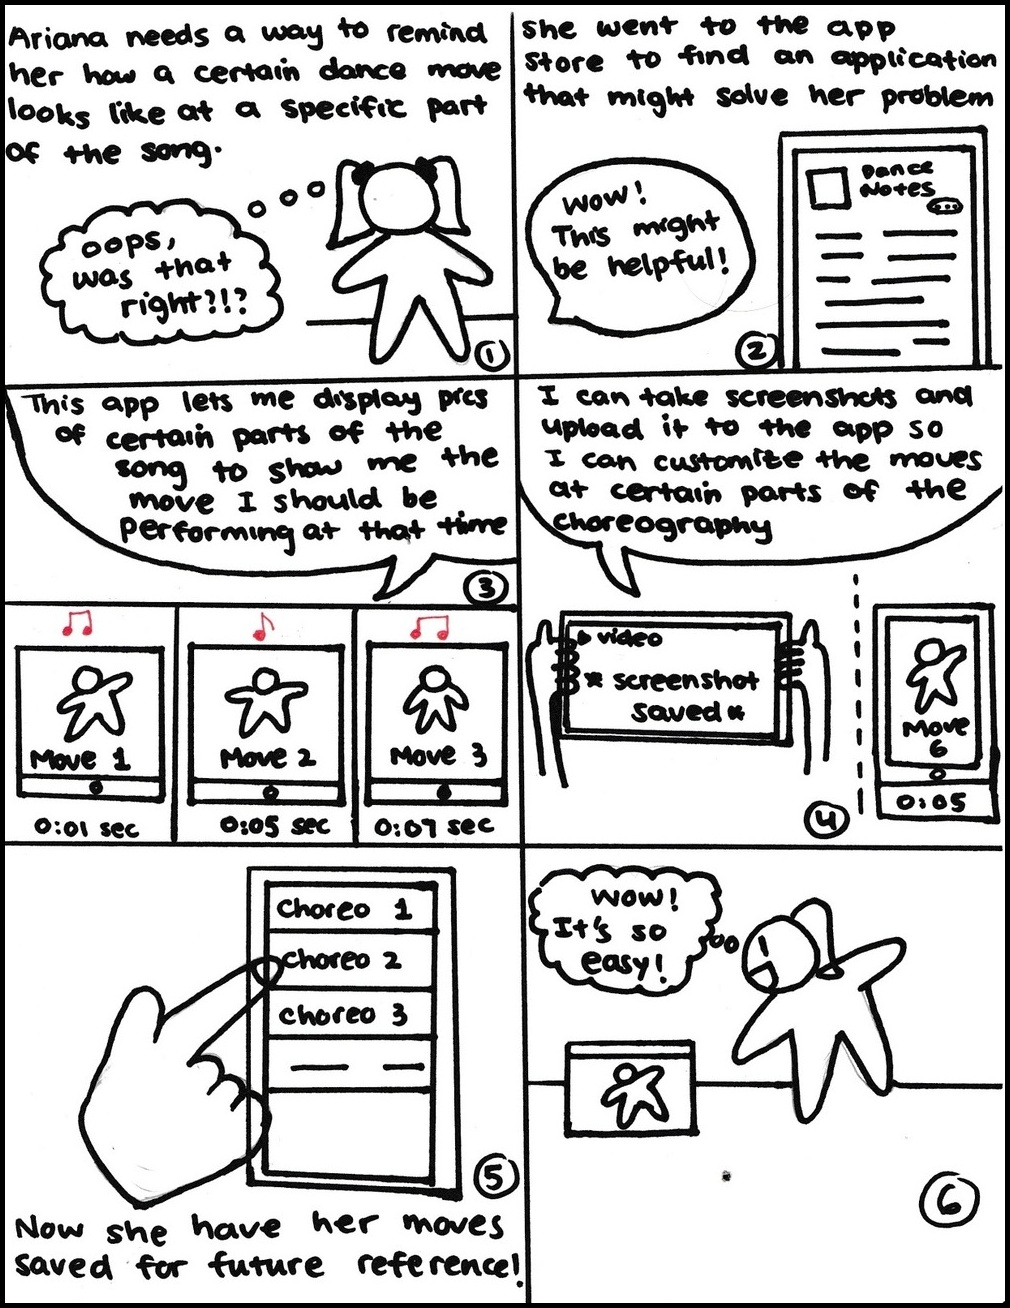 Ariana needs a way to remind
her how a certain dance move
looks like at a specific part
of the song.
oops,
was that
right?!?
1
she went to the app
store to find an application
that might solve her problem
Wow!
This might
be helpful!
Dance
Notes
2
This app lets me display pics
of certain parts of the
song to show me the
move I should be
performing at that time
3
Move 1
0:01 sec
Move 2
0:05 sec
Move 3
0:07 sec
I can take screenshots and
upload it to the app so
I can customize the moves
at certain parts of the
choreography
video
* screenshot
saved *
Move
6
0:05
4
Choreo 1
Choreo 2
Choreo 3
5
Now she have her moves
saved for future reference!
Wow!
It's so
easy!
6